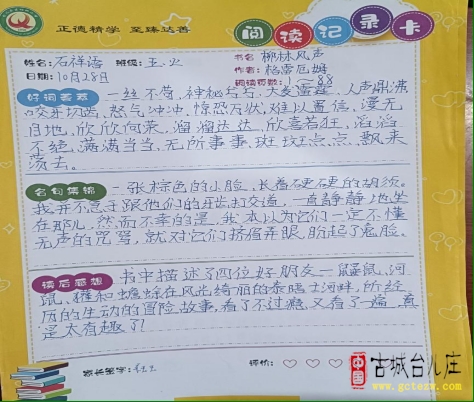 正德精学 至臻达善
阅读记录卡
姓名:石祥语 班级:五.火
书名 柳林风声
日期:10月28日
作者:格雷厄姆
阅读页数:1——88
好词荟萃 一丝不苟,神秘兮兮,大发雷霆,人声鼎沸
咬牙切齿,怒气冲冲,惊恐万状,难以置信,漫无
目地,欣欣向荣,溜溜达达,欣喜若狂,滔滔
不绝,满满当当,无所事事,斑斑点点,飘来
荡去。
名句集锦 一张棕色的小脸,长着硬硬的胡须。
我并不急于跟他们的牙齿打交道,一直静静地坐
在那儿,然而不幸的是,我本以为它们一定不懂
无声的咒骂,就对它们挤眉弄眼,盼起了鬼脸。
读后感想 书中描述了四位好朋友一鼹鼠,河
鼠,獾和蟾蜍在风光绮丽的泰晤士河畔,所经
历的生动的冒险故事,看了不过瘾,又看了一遍,真
是太有趣了!
家长签字:
评价:
中国 古城台儿庄
www.gctezw.com